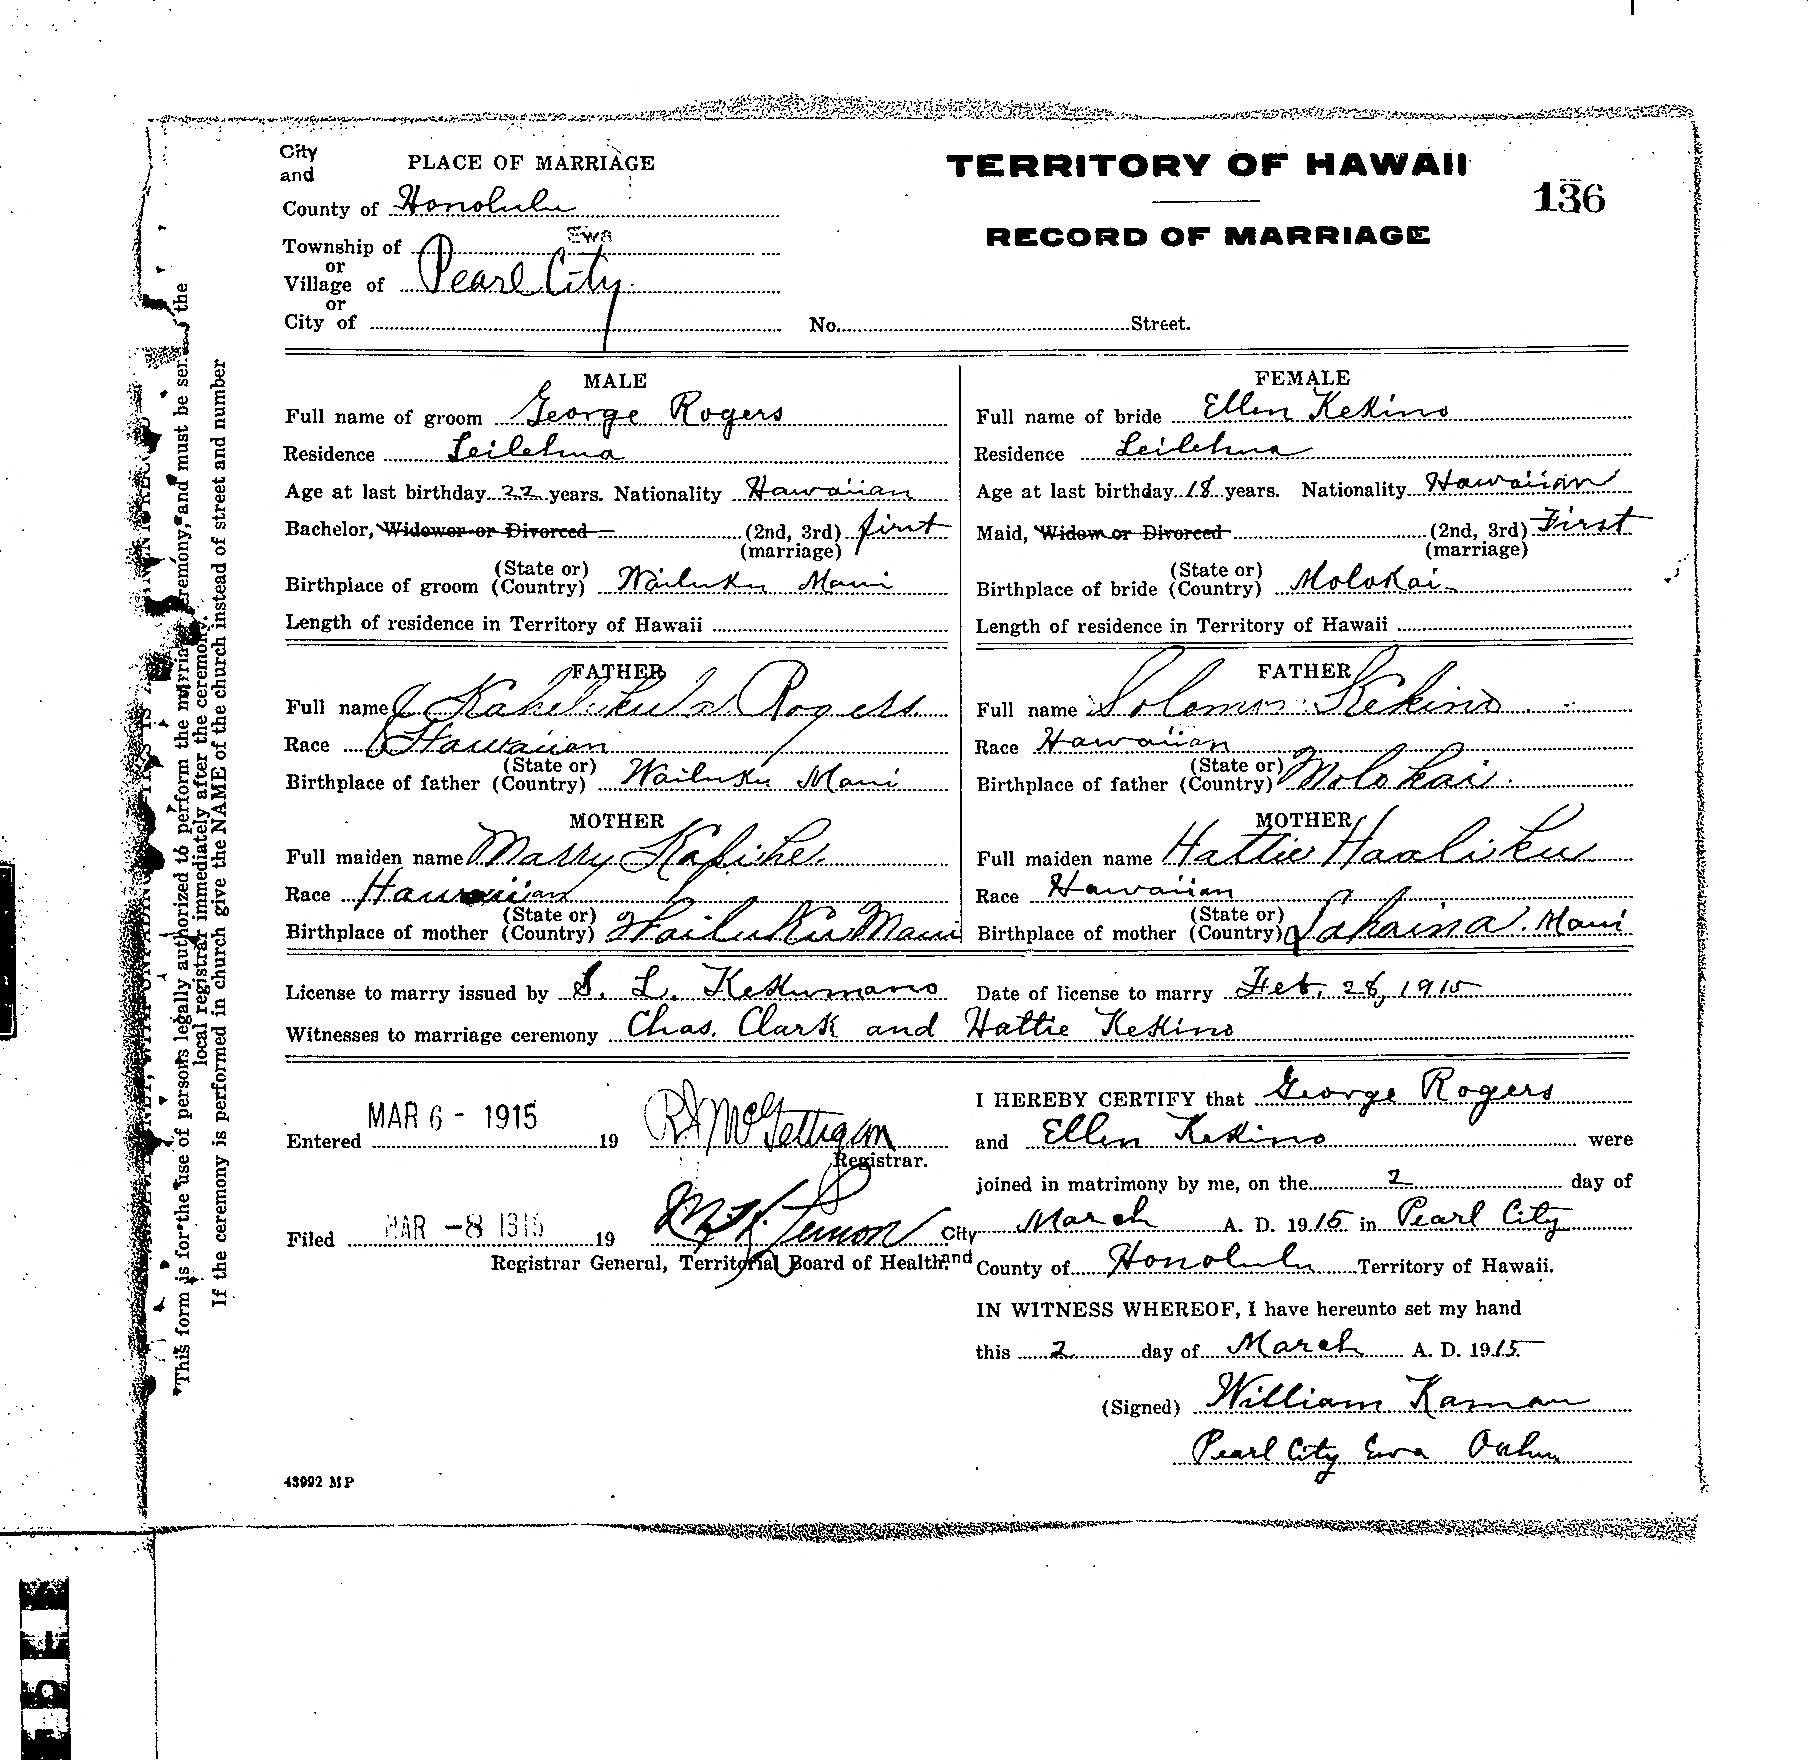 City
and
PLACE OF MARRIAGE
County of Honolulu
Township of Ewa
or
Village of Pearl City
or
City of No. Street.
TERRITORY OF HAWAII
136
RECORD OF MARRIAGE
MALE
Full name of groom George Rogers
Residence Leilehua
Age at last birthday 22 years. Nationality Hawaiian
Bachelor, Widower or Divorced (2nd, 3rd) first
(marriage)
(State or)
Birthplace of groom (Country) Wailuku Maui
Length of residence in Territory of Hawaii
FATHER
Full name Rogers
Race Hawaiian
(State or)
Birthplace of father (Country) Wailuku Maui
MOTHER
Full maiden name Marry
Race Hawaiian
(State or)
Birthplace of mother (Country) Wailuku Maui
FEMALE
Full name of bride Ellen Kekino
Residence Leilehua
Age at last birthday 18 years. Nationality Hawaiian
Maid, Widow or Divorced (2nd, 3rd) First
(marriage)
(State or)
Birthplace of bride (Country) Molokai
Length of residence in Territory of Hawaii
FATHER
Full name Solomon Kekino
Race Hawaiian
(State or)
Birthplace of father (Country) Molokai.
MOTHER
Full maiden name Hattie Haaliku
Race Hawaiian
(State or)
Birthplace of mother (Country) Lahaina. Maui
License to marry issued by S. L. Kekumano Date of license to marry Feb. 28, 1915
Witnesses to marriage ceremony Chas. Clark and Hattie Kekino
Entered MAR 6 - 1915 19 McGettigan
Registrar.
Filed MAR -8 1915 19 Lemon
Registrar General, Territorial Board of Health.
I HEREBY CERTIFY that George Rogers
and Ellen Kekino were
joined in matrimony by me, on the 2 day of
March A. D. 1915 in Pearl City
City
and County of Honolulu Territory of Hawaii.
IN WITNESS WHEREOF, I have hereunto set my hand
this 2 day of March A. D. 1915
(Signed) William Kamau
Pearl City Ewa Oahu
43992 MP
*This form is for the use of persons legally authorized to perform the marriage ceremony, and must be sent the
local registrar immediately after the ceremony.
If the ceremony is performed in church give the NAME of the church instead of street and number